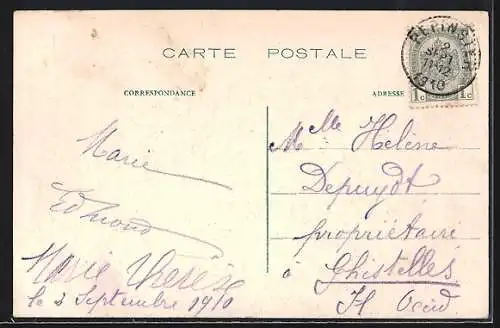 CARTE POSTALE
CORRESPONDANCE
ADRESSE
PEPINSTER
1910
1c 1c
Marie
Edmond
Marie Thérèse
le 2 Septembre 1910
Melle Hélène
Depuydt
propriétaire
à Ghistelles
Fl Occid